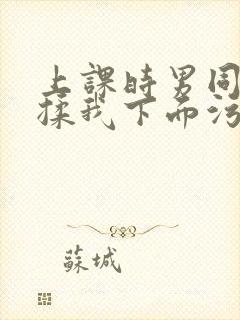 上課時男同
揉我下面污
蘇城